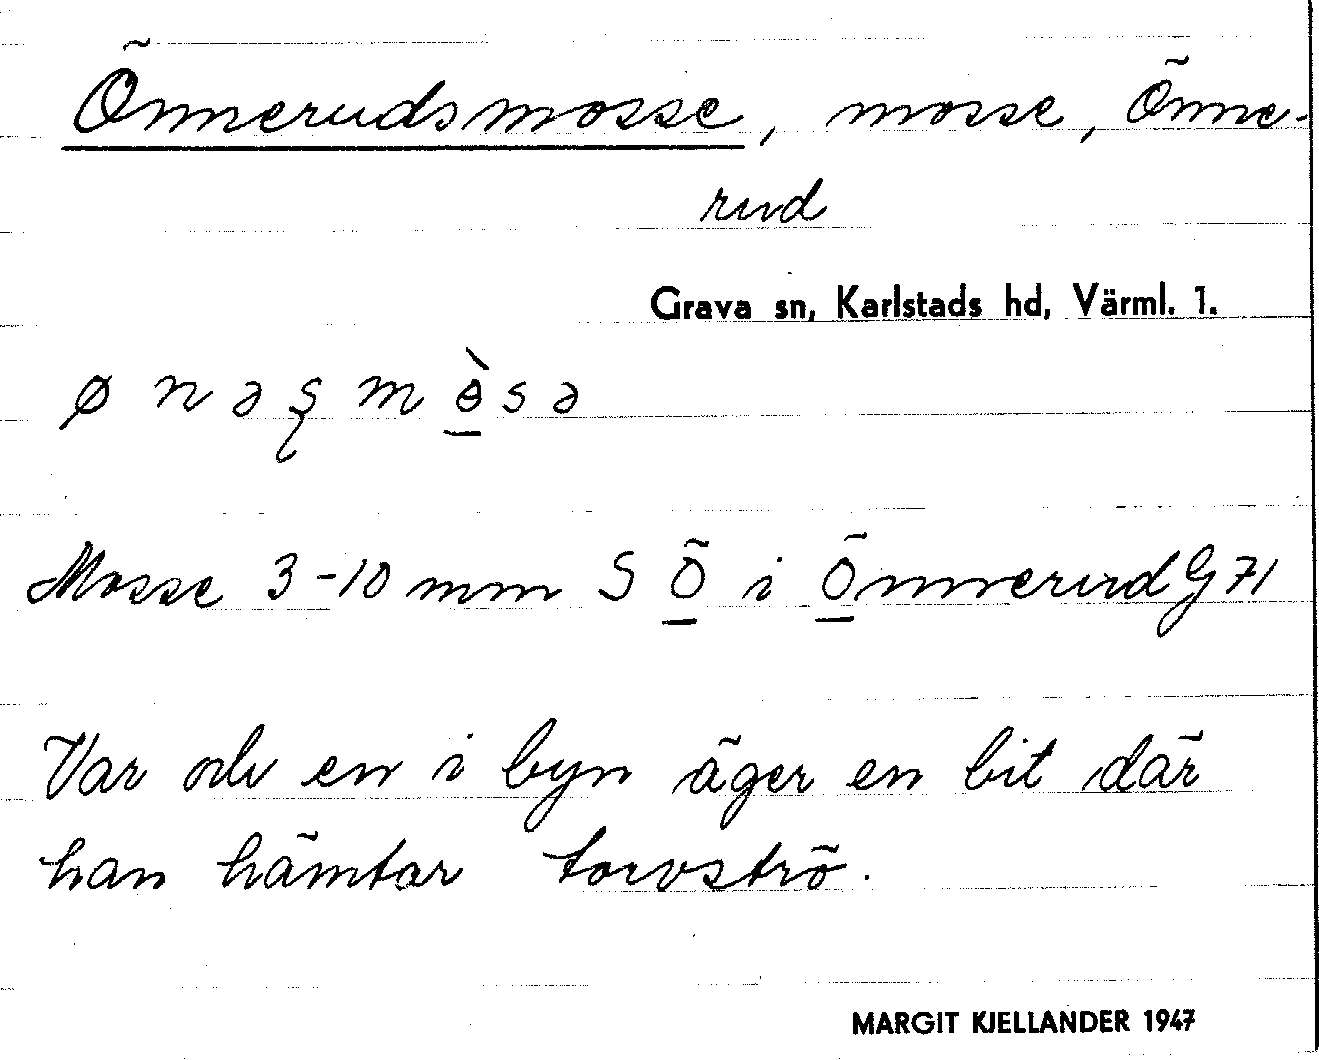 Önnerudsmosse, mosse, Önne-
rud
Grava sn, Karlstads hd, Värml. 1.
ø n ə ʂ m ɵ̀ s ə
Mosse 3-10 mm S Ö i Önnerud G 71
Var och en i byn äger en bit där
han hämtar torvströ.
MARGIT KJELLANDER 1947